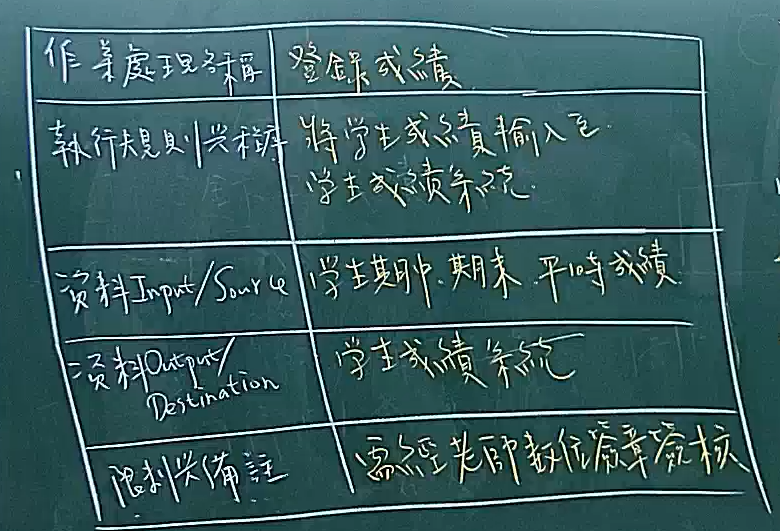 作業處理名稱
登錄成績
執行規則与程序
將学生成績輸入至
学生成績系統
資料Input/Source
学生期中.期末.平時成績
資料Output/
Destination
学生成績系統
限制与備註
需經老師數位簽章簽核